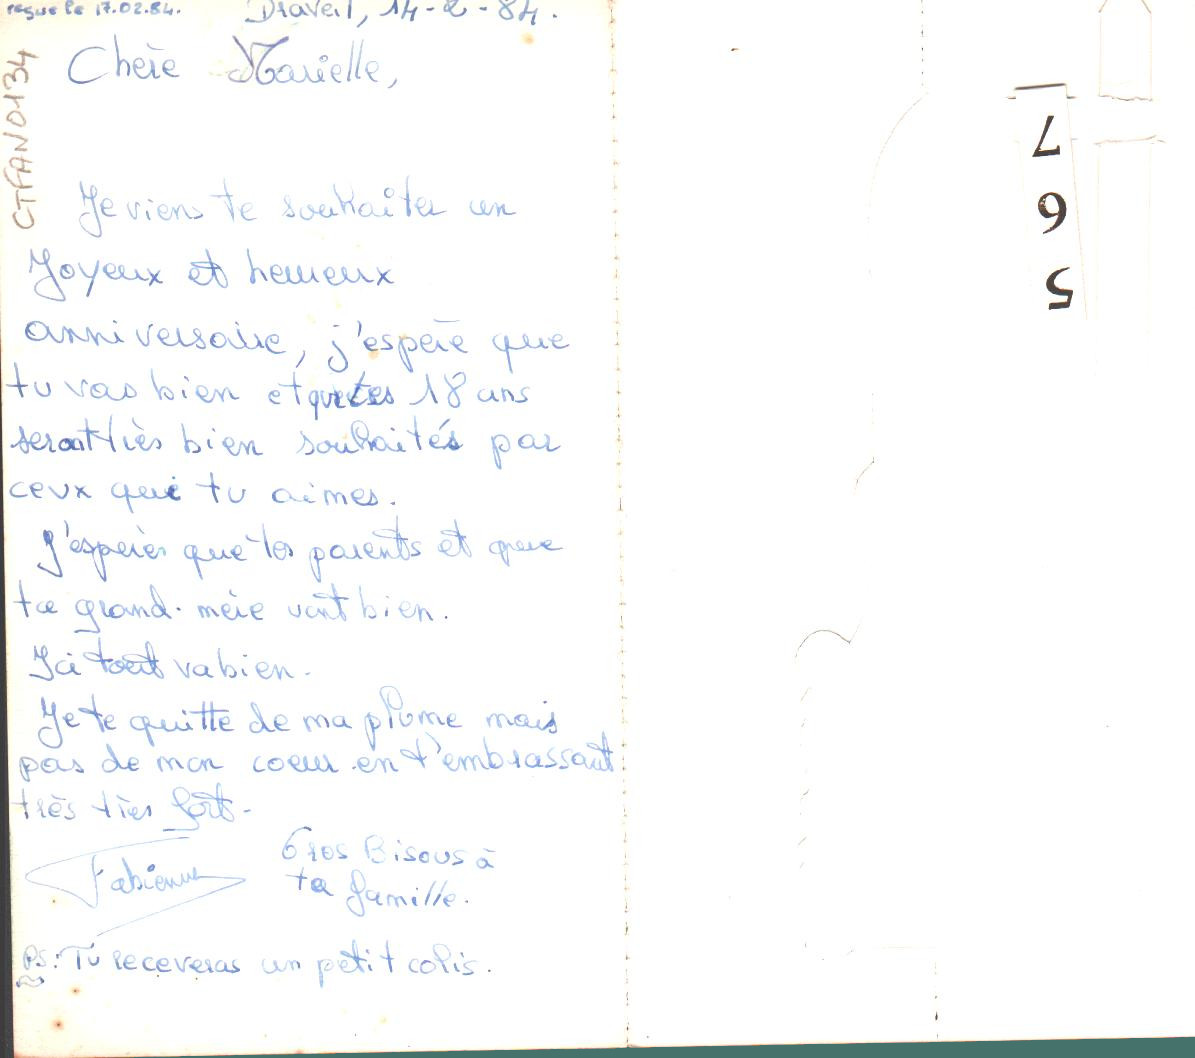 reçue le 17.02.84.
Draveil, 14-2-84.
CTFAN0134
Chère Marielle,
Je viens te souhaiter un
Joyeux et heureux
anniversaire, j'espère que
tu vas bien et que tes 18 ans
seront très bien souhaités par
ceux que tu aimes.
J'espères que tes parents et que
ta grand-mère vont bien.
Ici tout va bien.
Je te quitte de ma plume mais
pas de mon coeur en t'embrassant
très très fort.
Fabienne
Gros Bisous à
ta famille.
PS: Tu receveras un petit colis.
7
6
5